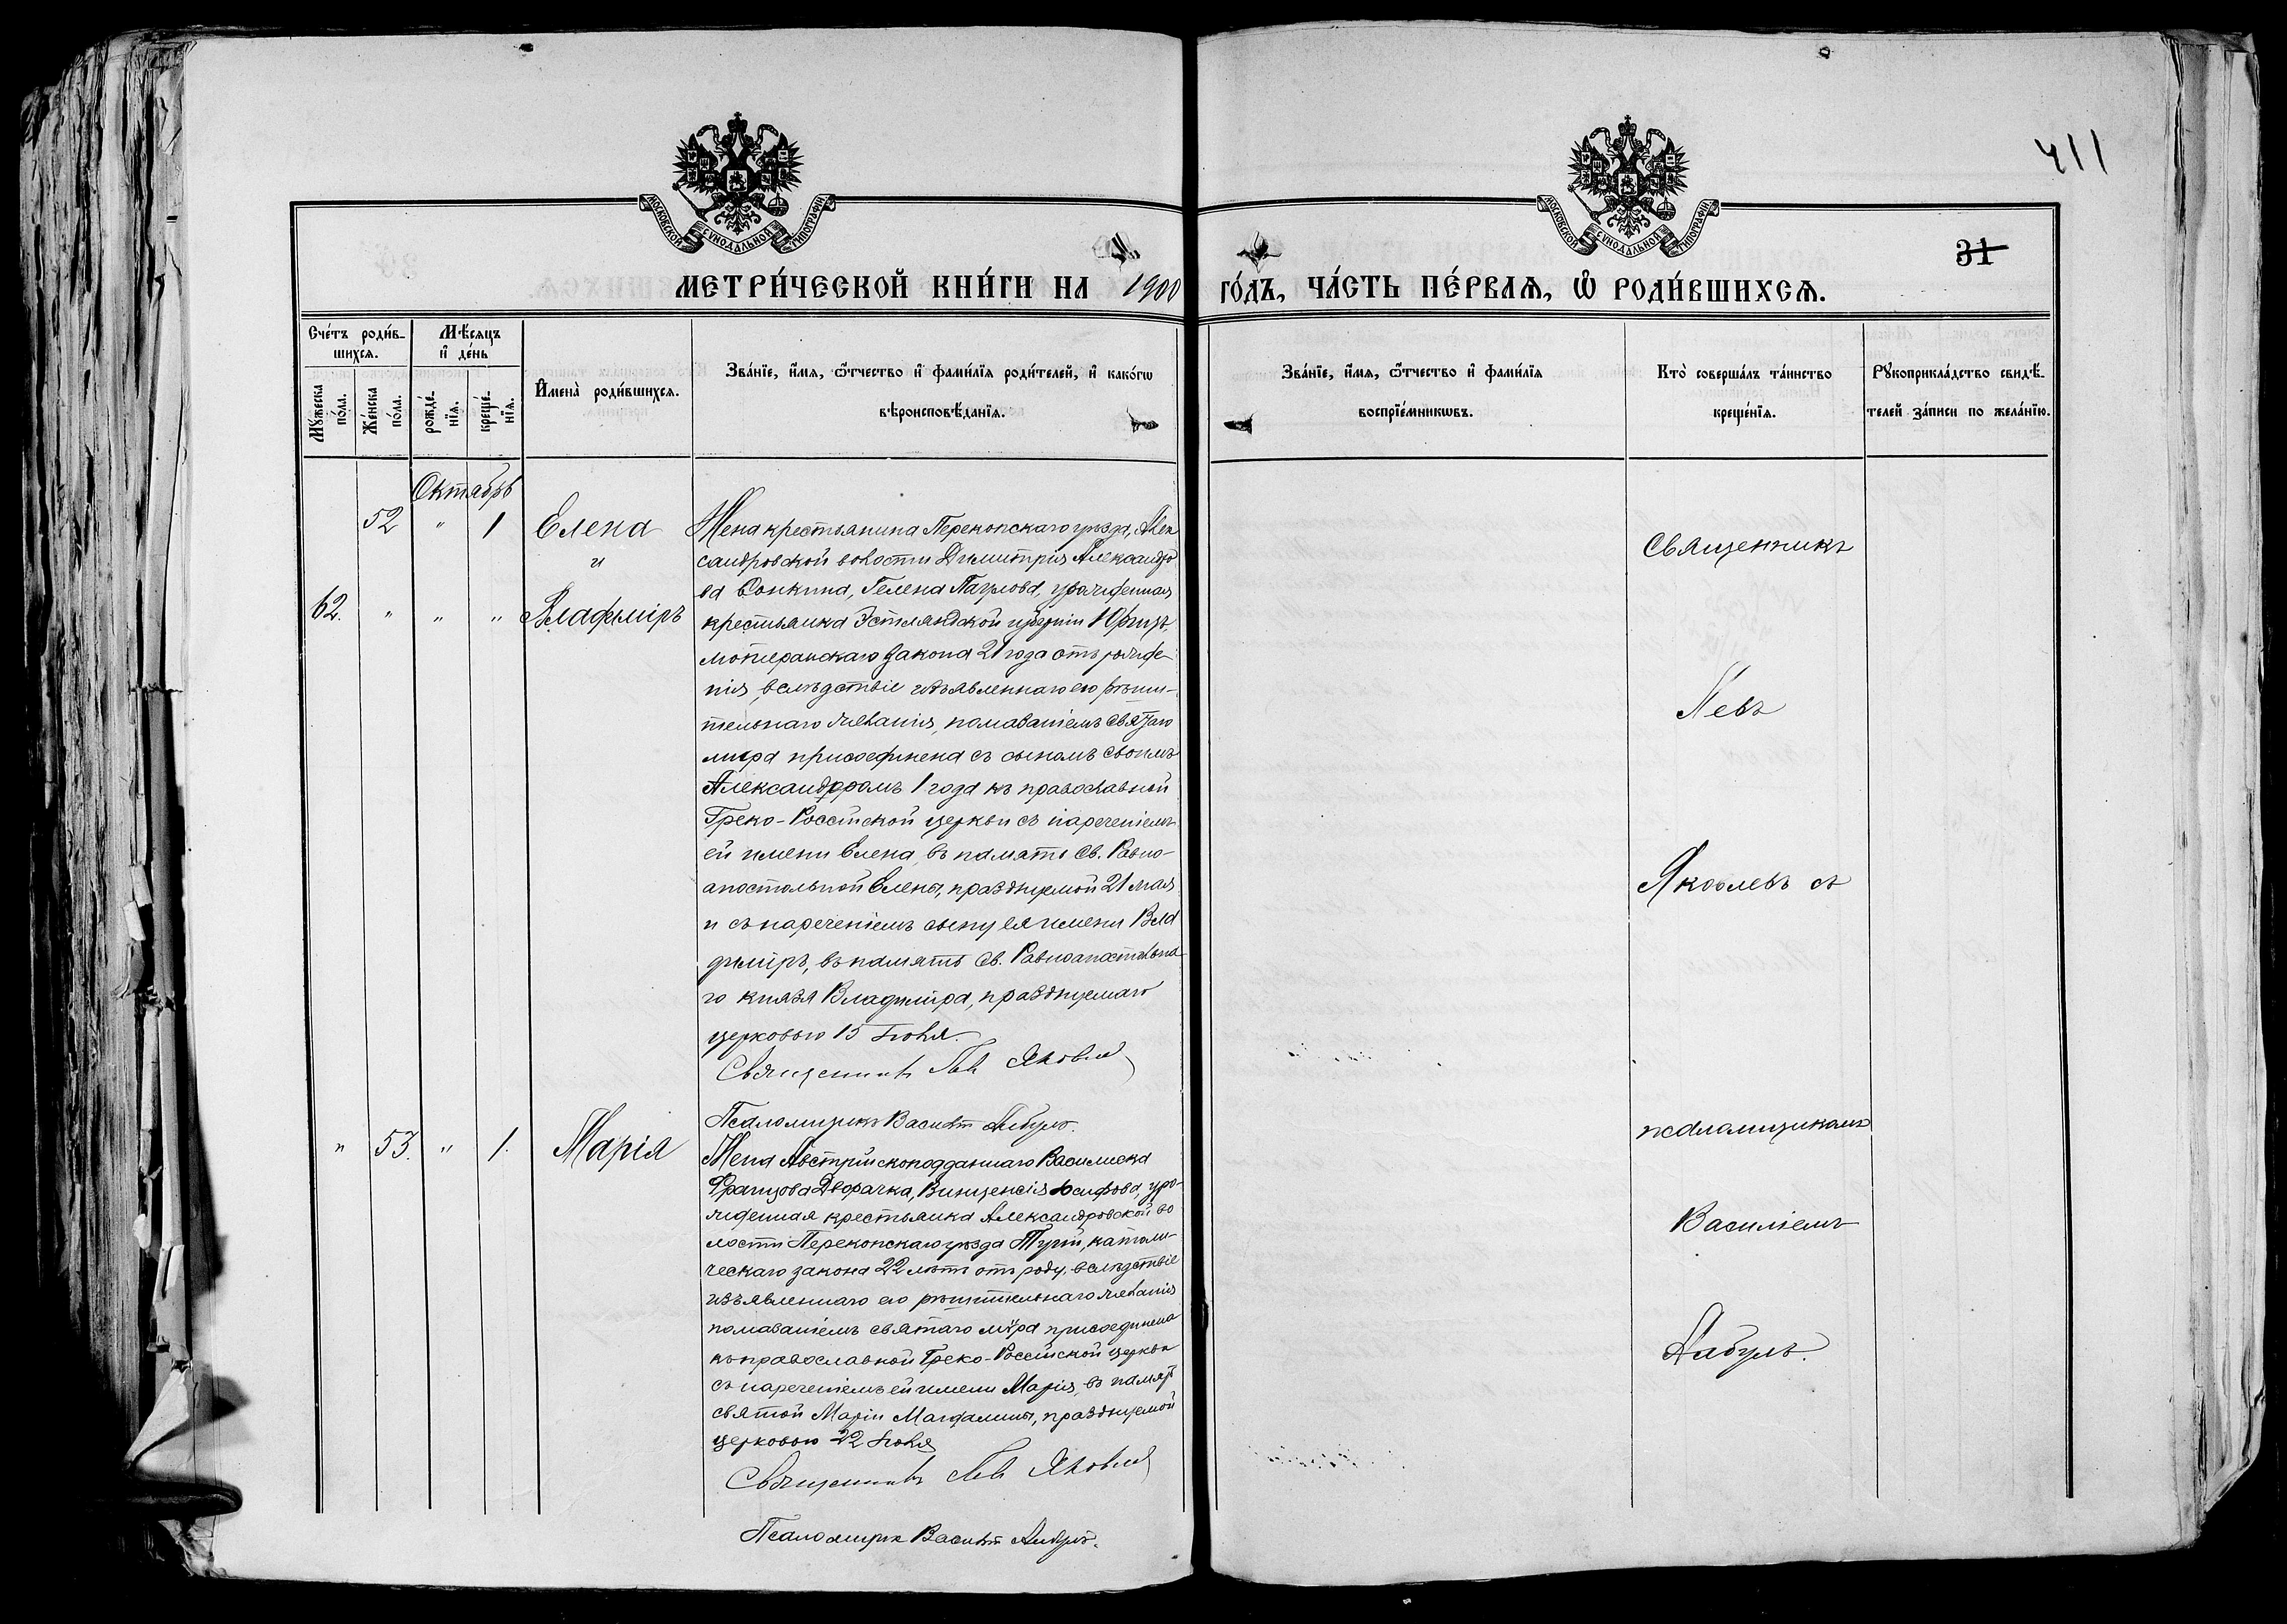 МОСКОВСКОЙ СУНОДАЛЬНОЙ ТИПОГРАФІИ
МОСКОВСКОЙ СУНОДАЛЬНОЙ ТИПОГРАФІИ
411
31
МЕТРИ́ЧЕСКОЙ КНИ́ГИ НА 1900
ГО́ДЪ, ЧА́СТЬ ПЕ́РВАѦ, Ѽ РОДИ́ВШИХСѦ.
Сче́тъ роди́в-
шихсѧ.
Мѣ́сѧцъ
и҆ де́нь
Мꙋ́жеска
по́ла.
Же́нска
по́ла.
рожде́-
нїѧ.
креще́-
нїѧ.
И҆мена̀ роди́вшихсѧ.
Зва́нїе, и҆́мѧ, ѻ҆́тчество и҆ фами́лїѧ роди́телей, и҆ како́гѡ
вѣроисповѣ́данїѧ.
Зва́нїе, и҆́мѧ, ѻ҆́тчество и҆ фами́лїѧ
воспрїе́мникѡвъ.
Кто̀ соверша́лъ та́инство
креще́нїѧ.
Рꙋкоприкла́дство свидѣ́-
телей за́писи по жела́нїю.
Октябрь
52 " 1 Елена
и
62. " " " Владиміръ
Жена крестьянина Перекопскаго уѣзда, Алек
сандровской волости Димитрія Александро
ва Сонкина, Гелена Паулова, урожденная
крестьянка Эстляндской губерніи
лютеранскаго закона 21 года отъ рожде-
нія, вслѣдствіе изъявленнаго ею рѣши-
тельнаго желанія, помазаніемъ Святаго
мира присоединена съ сыномъ своимъ
Александромъ 1 года къ православной
Греко-Россійской церкви съ нареченіемъ
ей имени Елена, въ память Св. Равно-
апостольной Елены, празднуемой 21 мая
и съ нареченіемъ сыну ея имени Вла
диміръ, въ память Св. Равноапостольна
го князя Владиміра, празднуемаго
церковью 15 Іюля.
Священникъ Левъ Яковлев
Псаломщикъ Василій
" 53. " 1. Марія
Жена Австрійскоподданнаго Василиска
Францова Дворачка, Винценсія Іосифова, уро-
жденная крестьянка Александровской во
лости Перекопскаго уѣзда католи-
ческаго закона 22 лѣтъ отъ роду, вслѣдствіе
изъявленнаго ею рѣшительнаго желанія
помазаніемъ святаго мѵра присоединена
къ православной Греко-Россійской церкви
съ нареченіемъ ей имени Марія, въ память
святой Маріи Магдалины, празднуемой
церковью 22 Іюля
Священникъ Левъ Яковлев
Псаломщик Василій
Священникъ
Левъ
Яковлевъ съ
псаломщикомъ
Василіемъ